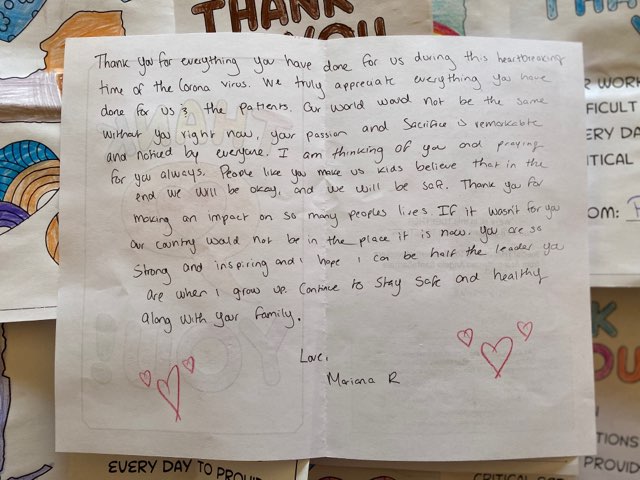 THANK
YOU
Thank you for everything you have done for us during this heartbreaking
time of the Corona virus. We truly appreciate everything you have
done for us & the patients. Our world would not be the same
without you right now, your passion and sacrifice is remarkable
and noticed by everyone. I am thinking of you and praying
for you always. People like you make us kids believe that in the
end we will be okay, and we will be safe. Thank you for
making an impact on so many peoples lives. If it wasn't for you
our country would not be in the place it is now. You are so
strong and inspiring and i hope i can be half the leader you
are when i grow up. Continue to stay safe and healthy
along with your family.
Love,
Mariana R
R WORK
FFICULT
ERY DA
ITICAL
OM:
OU
TIONS
PROVID
EVERY DAY TO PROVID